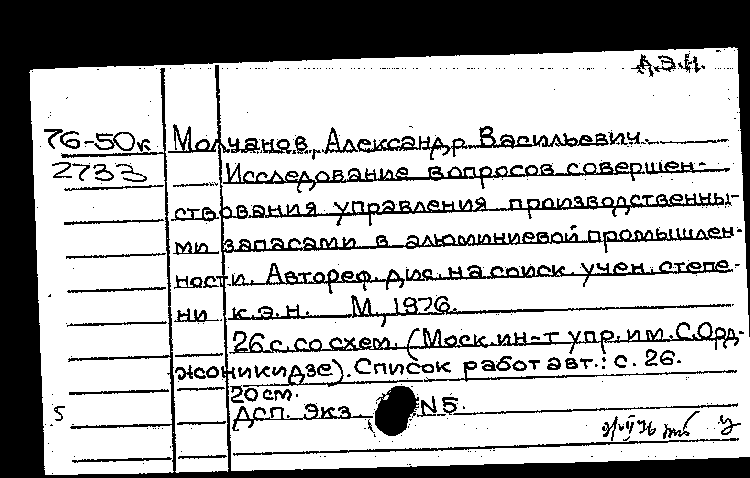 А.Э.Н.
76-50к Молчанов, Александр Васильевич.
2733 Исследование вопросов совершен-
ствования управления производственны-
ми запасами в алюминиевой промышлен-
ности. Автореф. дис. на соиск. учен. степе-
ни к.э.н. М., 1976.
26 с. со схем. (Моск. ин-т упр. им. С. Орд-
жоникидзе). Список работ авт.: с. 26.
20 см.
5 ДСП. Экз. N 5.
у